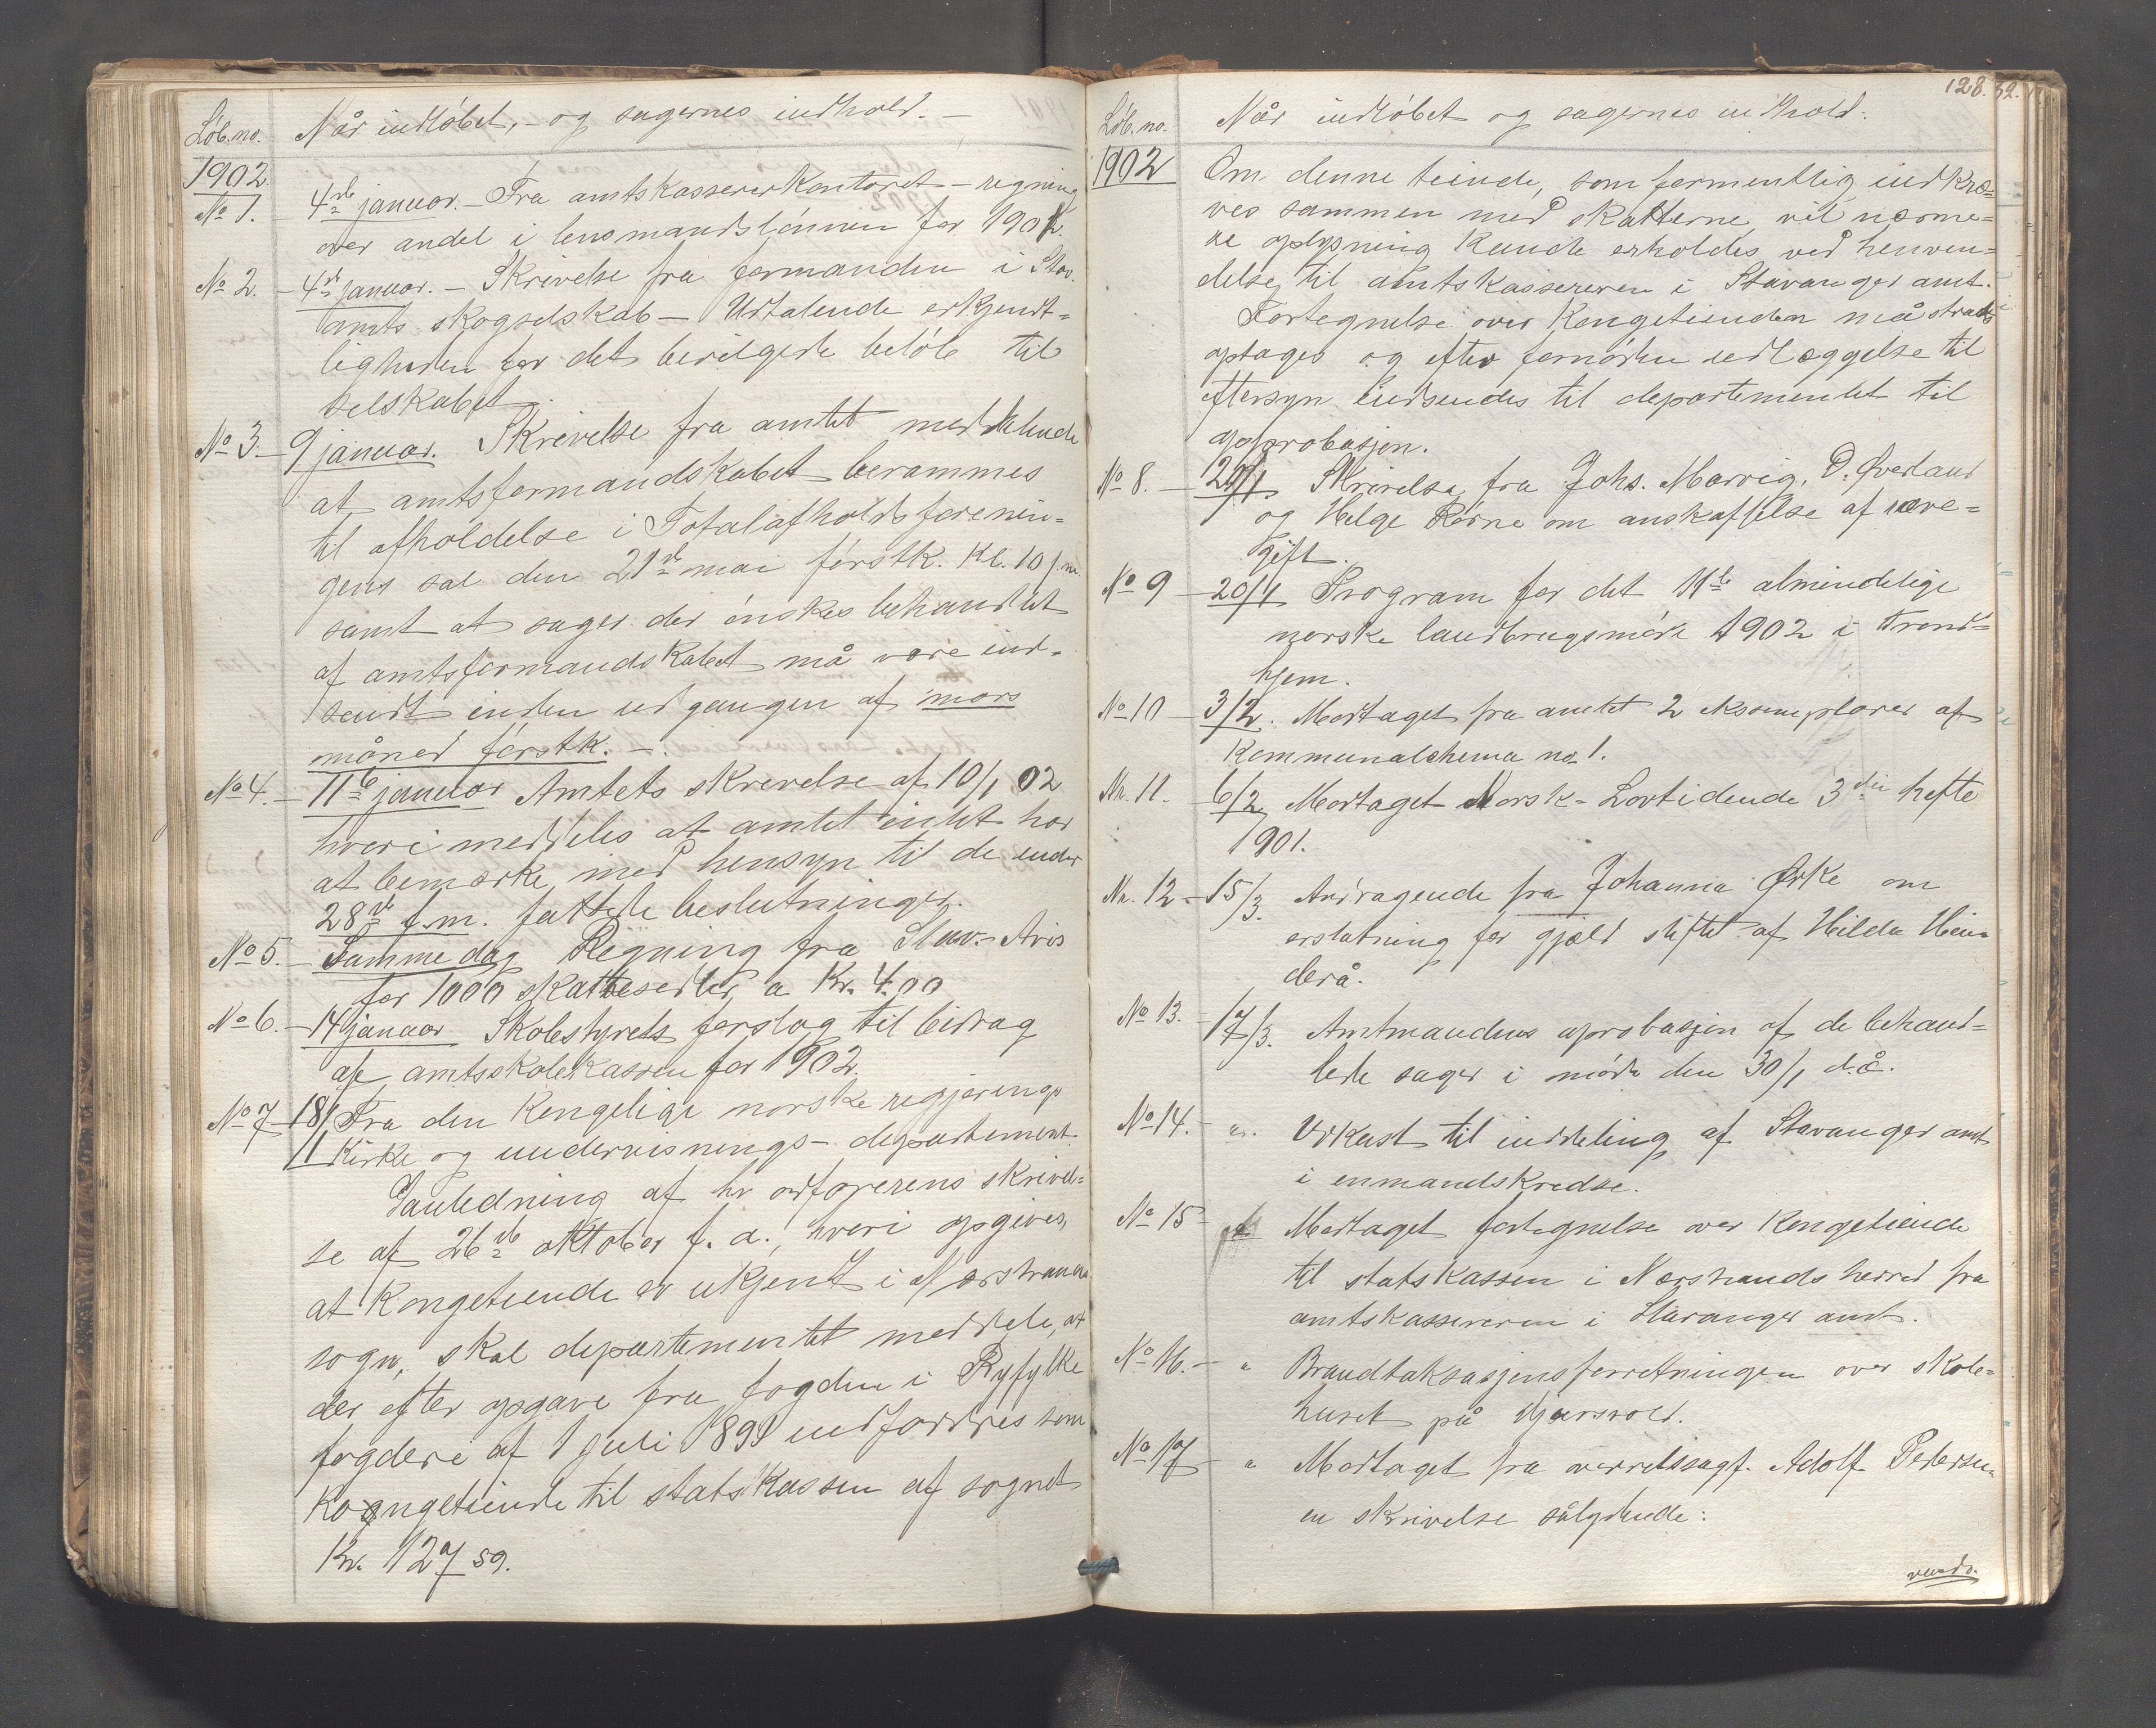 Løb.no. Når indløbet, – og sagernes indhold. –
1902.
No 1. – 4de januar. – Fra amtskassererkontoret – regning
over andel i lensmandslønnen for 1901.
No 2. – 4de januar. – Skrivelse fra formanden i Stav.
amts skogselskab – Udtalende erkjendt=
ligheden for det bevilgede beløb til
selskabet.
No 3. – 9 januar. Skrivelse fra amtet meddelende
at amtsformandskabet berammes
til afholdelse i Totalafholdsforenin=
gens sal den 21de mai førstk. Kl. 10 f.m.
samt at sager der ønskes behandlet
af amtsformandskabet må være ind=
sendt inden udgangen af mars
måned førstk. –
No 4. – 11te januar Amtets skrivelse af 10/1 02
hvori meddeles at amtet intet har
at bemærke med hensyn til de under
28de f.m. fattede beslutninger.
No 5. – Samme dag Regning fra Stav. Avis
for 1000 skattesedler a Kr. 4.00
No 6. – 14 januar Skolestyrets forslag til bidrag
af amtsskolekassen for 1902.
No 7 – 18/1 Fra den Kongelige norske regjerings
Kirke og undervisnings- departement.
I anledning af hr ordførerens skrivel=
se af 26de oktober f. a., hvori opgives,
at Kongetiende er ukjent i Nærstrand
sogn, skal departementet meddele, at
der efter opgave fra fogden i Ryfylke
fogderi af 1 juli 1891 indfordres som
Kongetiende til statskassen af sognet
Kr. 127 59.
128. 52.
Løb.no. Når indløbet og sagernes indhold.
1902 Om denne tiende, som formentlig indkræ=
ves sammen med skatterne, vil nærme=
re oplysning kunde erholdes ved henven=
delse til amtskassereren i Stavanger amt.
Fortegnelse over Kongetienden må straks
optages og efter fornøden udlæggelse til
eftersyn indsendes til departementet til
approbasjon.
No 8. – 20/1 Skrivelse fra Johs. Marvig, D. Øverland
og Helge Rørne om anskaffelse af ræve=
gift.
No 9 – 20/1 Program for det 11te almindelige
norske landbrugsmøde 1902 i Trond=
hjem.
No 10 – 3/2. Modtaget fra amtet 2 eksemplarer af
Kommunalschema no 1.
Nr. 11. – 6/2 Modtaget Norsk- Lovtidende 3die hefte
1901.
Nr. 12 – 15/3. Andragende fra Johanna Ørke om
erstatning for gjæld stiftet af Hilda Hein
derå.
No 13. – 17/3. Amtmandens aprobasjon af de behand=
lede sager i møde den 30/1 d.å.
No 14. – „. Udkast til inddeling af Stavanger amt
i enmandskredse.
No 15 – Modtaget fortegnelse over Kongetiende
til statskassen i Nærstrands herred fra
amtskassereren i Stavanger amt.
No 16. – „ Brandtaksasjonsforretningen over skole=
huset på
No 17 – „ Modtaget fra overretssagf. Adolf Pedersen
en skrivelse sålydende:
vend.